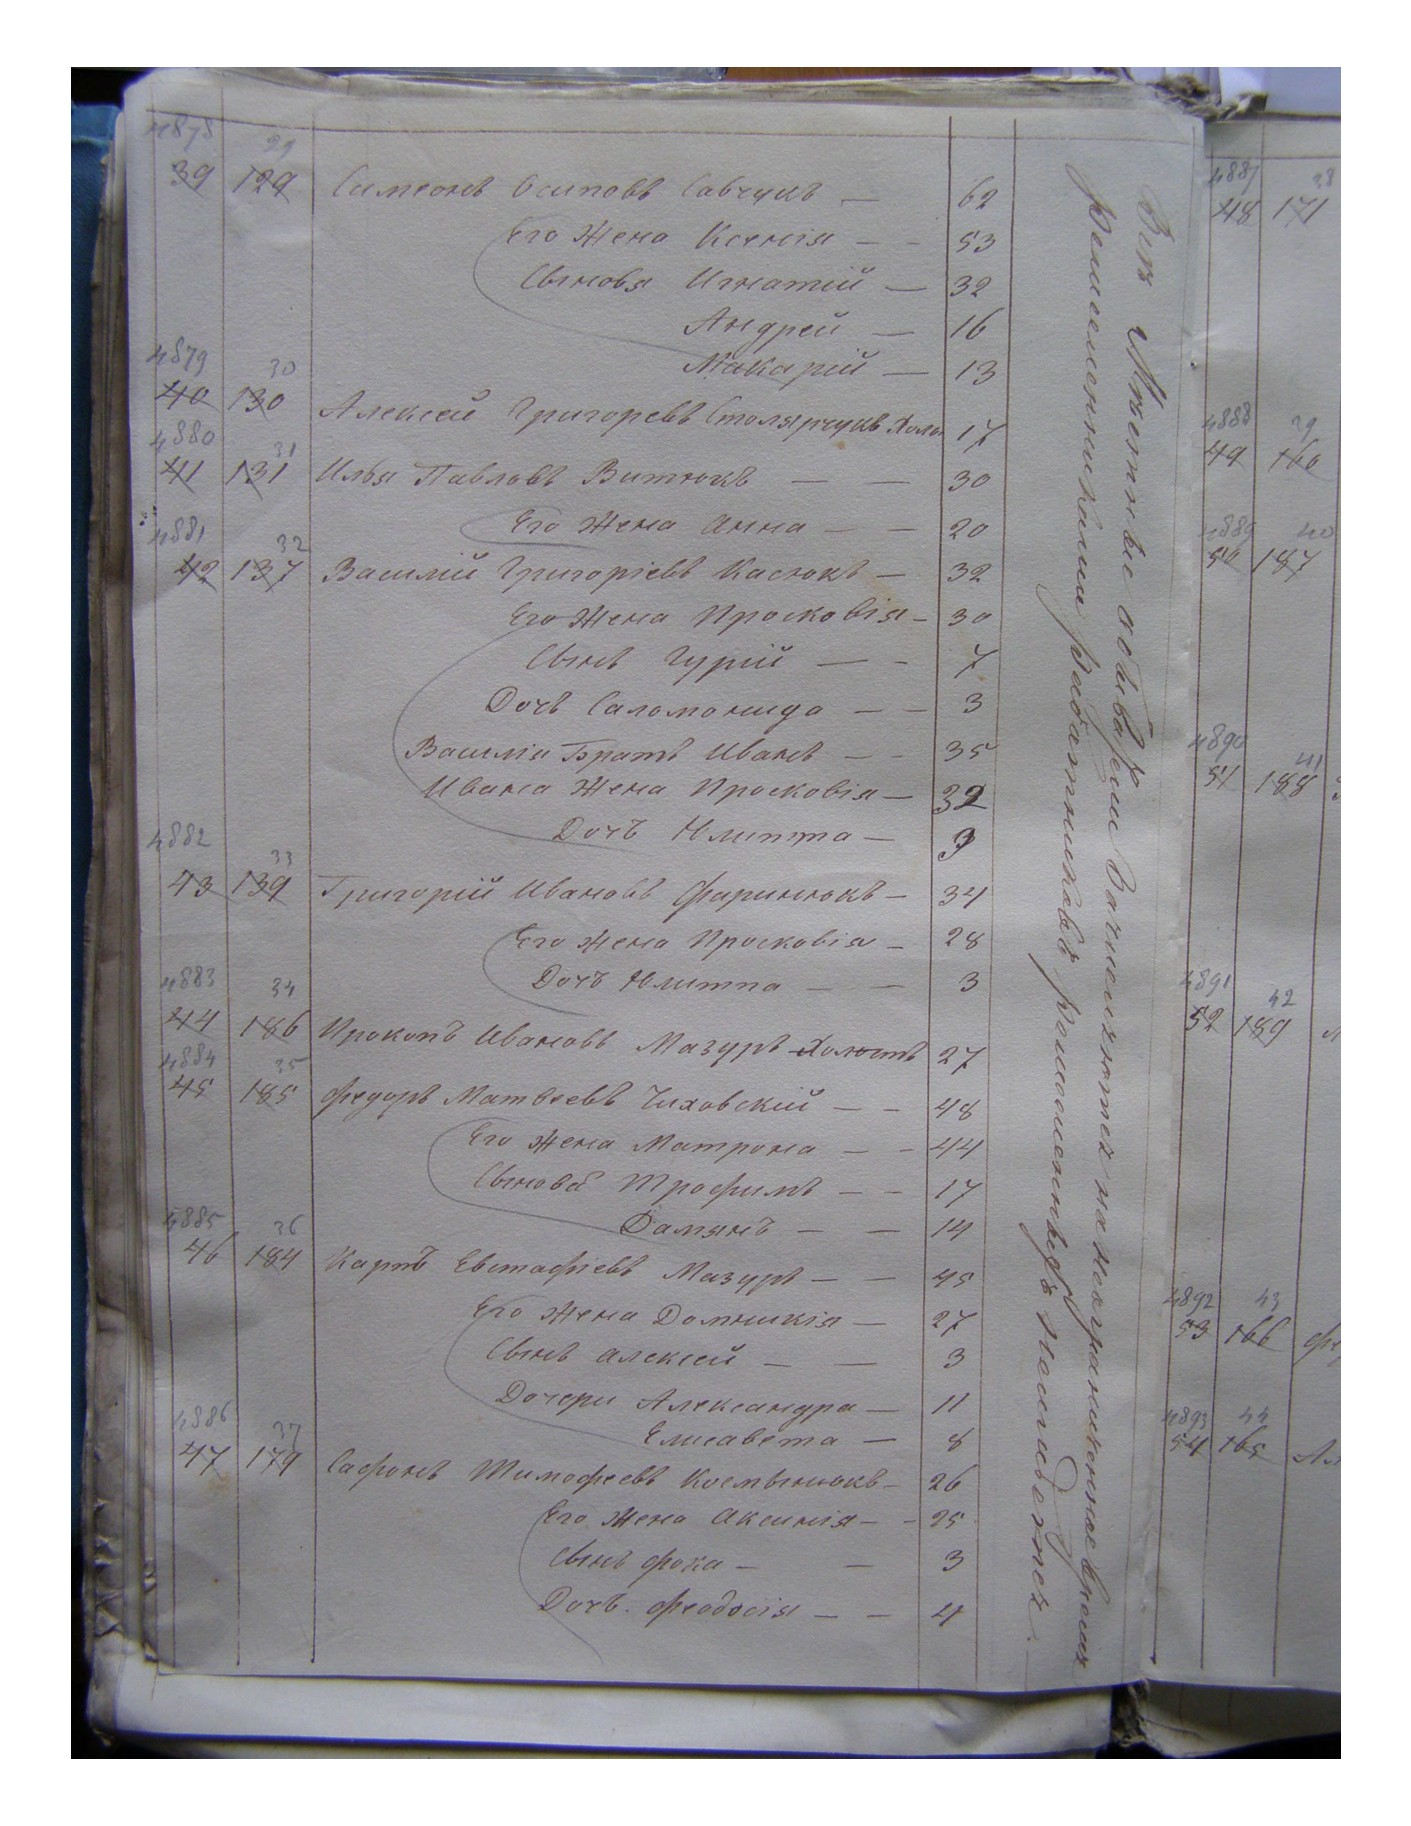 4878 29
39 129 Симеонъ Осиповъ Савчукъ — 62
Его Жена Ксенія — — 53
Сыновья Игнатій — 32
Андрей — 16
Макарій — 13
4879 30
40 130 Алексей Григоревъ Столярчукъ Холо 17
4880 31
41 131 Илья Павловъ Витюкъ — — 30
Его Жена Анна — — 20
4881 32
42 137 Василій Григоріевъ Касюкъ — 32
Его Жена Просковія — 30
Сынъ Гурій — — 7
Дочь Саломонида — — 3
Василія Братъ Иванъ — — 35
Ивана Жена Просковія — 32
Дочъ Юлитта — 9
4882 33
43 139 Григорій Ивановъ Фаринюкъ — 34
Его Жена Просковія — 28
Дочъ Юлитта — — 3
4883 34
44 186 Прокопъ Ивановъ Мазуръ Холостъ 27
4884 35
45 185 Федоръ Матвеевъ Чиховскій — — 48
Его Жена Матрона — — 44
Сыновья Трофимъ — — 17
Дамянъ — — 14
4885 36
46 184 Карпъ Евстафіевъ Мазуръ — — 45
Его Жена Домникія — 27
Сынъ Алексей — — 3
Дочери Александра — 11
Елисавета — 8
4886 37
47 179 Сафонъ Тимофеевъ Костынюкъ — 26
Его Жена Аксинія — — 25
Сынъ Фока — — 3
Дочь Феодосія — — 4
4887 38
48 171
4888 39
49 160
4889 40
50 187
4890 41
51 188
4891 42
52 189
4892 43
53 166
4893 44
54 165